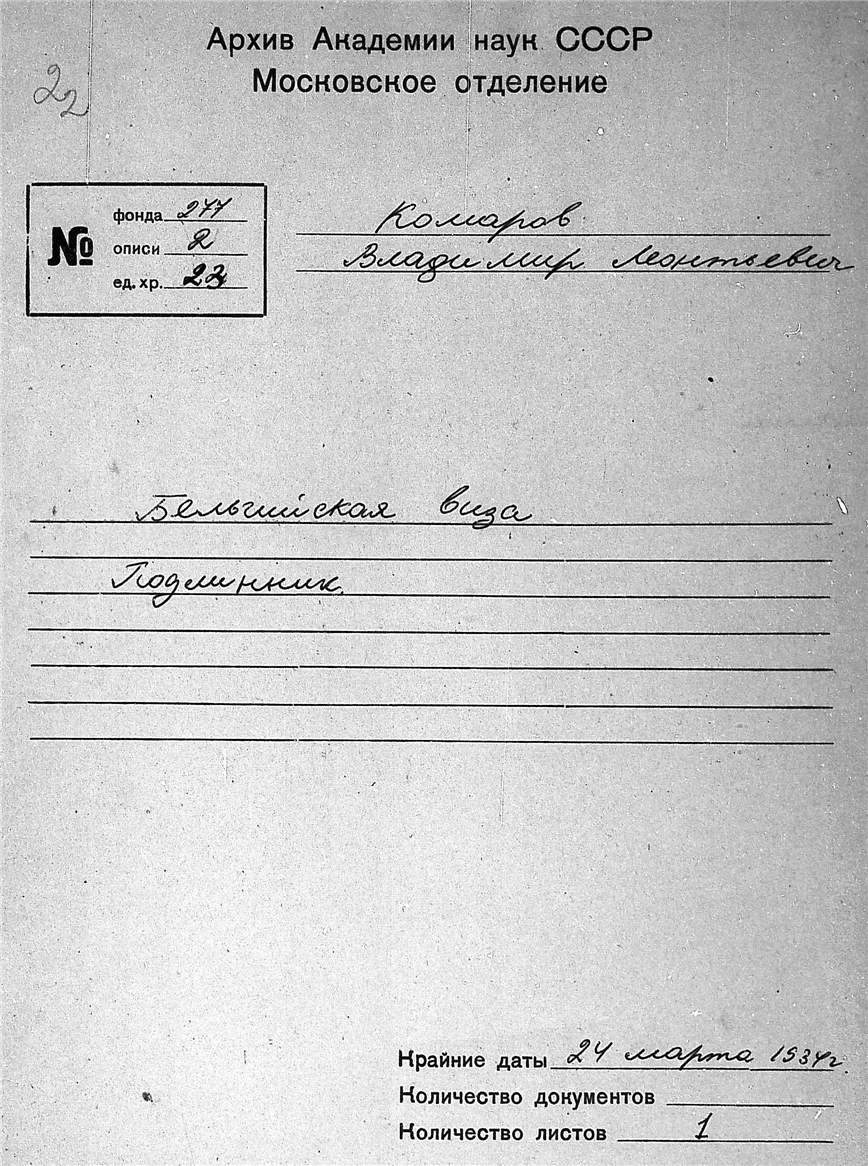 Архив Академии наук СССР
Московское отделение
22
№
фонда 277
описи 2
ед. хр.
Комаров
Владимир Леонтьевич
Бельгийская виза
Подлинник.
Крайние даты 24 марта 1934г.
Количество документов
Количество листов 1